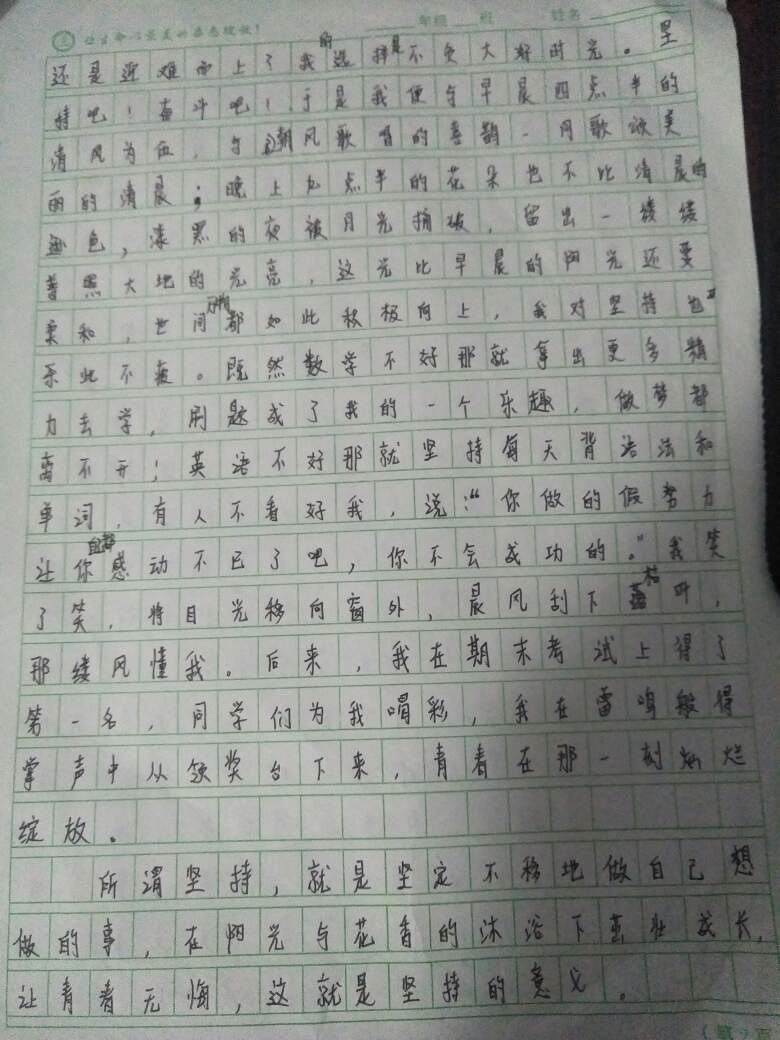 让生命以最美的姿态绽放！ 年级 班 姓名
还是迎难而上了我的选择是不负大好时光。坚
持吧！奋斗吧！于是我便与早晨四点半的
清风为伍，与朝风歌唱的喜鹊一同歌颂美
丽的清晨；晚上九点半的花朵也不比清晨的
逊色，漆黑的夜被月光捅破，留出一缕缕
普照大地的光亮，这光比早晨的阳光还要
柔和，世间万物都如此积极向上，我对坚持也
乐此不疲。既然数学不好那就拿出更多精
力去学，刷题成了我的一个乐趣，做梦都
离不开；英语不好那就坚持每天背语法和
单词，有人不看好我，说：“你做的假努力
让你自都感动不已了吧，你不会成功的。”我笑
了笑，将目光移向窗外，晨风刮下枯叶，
那缕风懂我。后来，我在期末考试上得了
第一名，同学们为我喝彩，我在雷鸣般得
掌声中从领奖台下来，青春在那一刻灿烂
绽放。
所谓坚持，就是坚定不移地做自己想
做的事，在阳光与花香的沐浴下茁壮成长，
让青春无悔，这就是坚持的意义。
（第2页